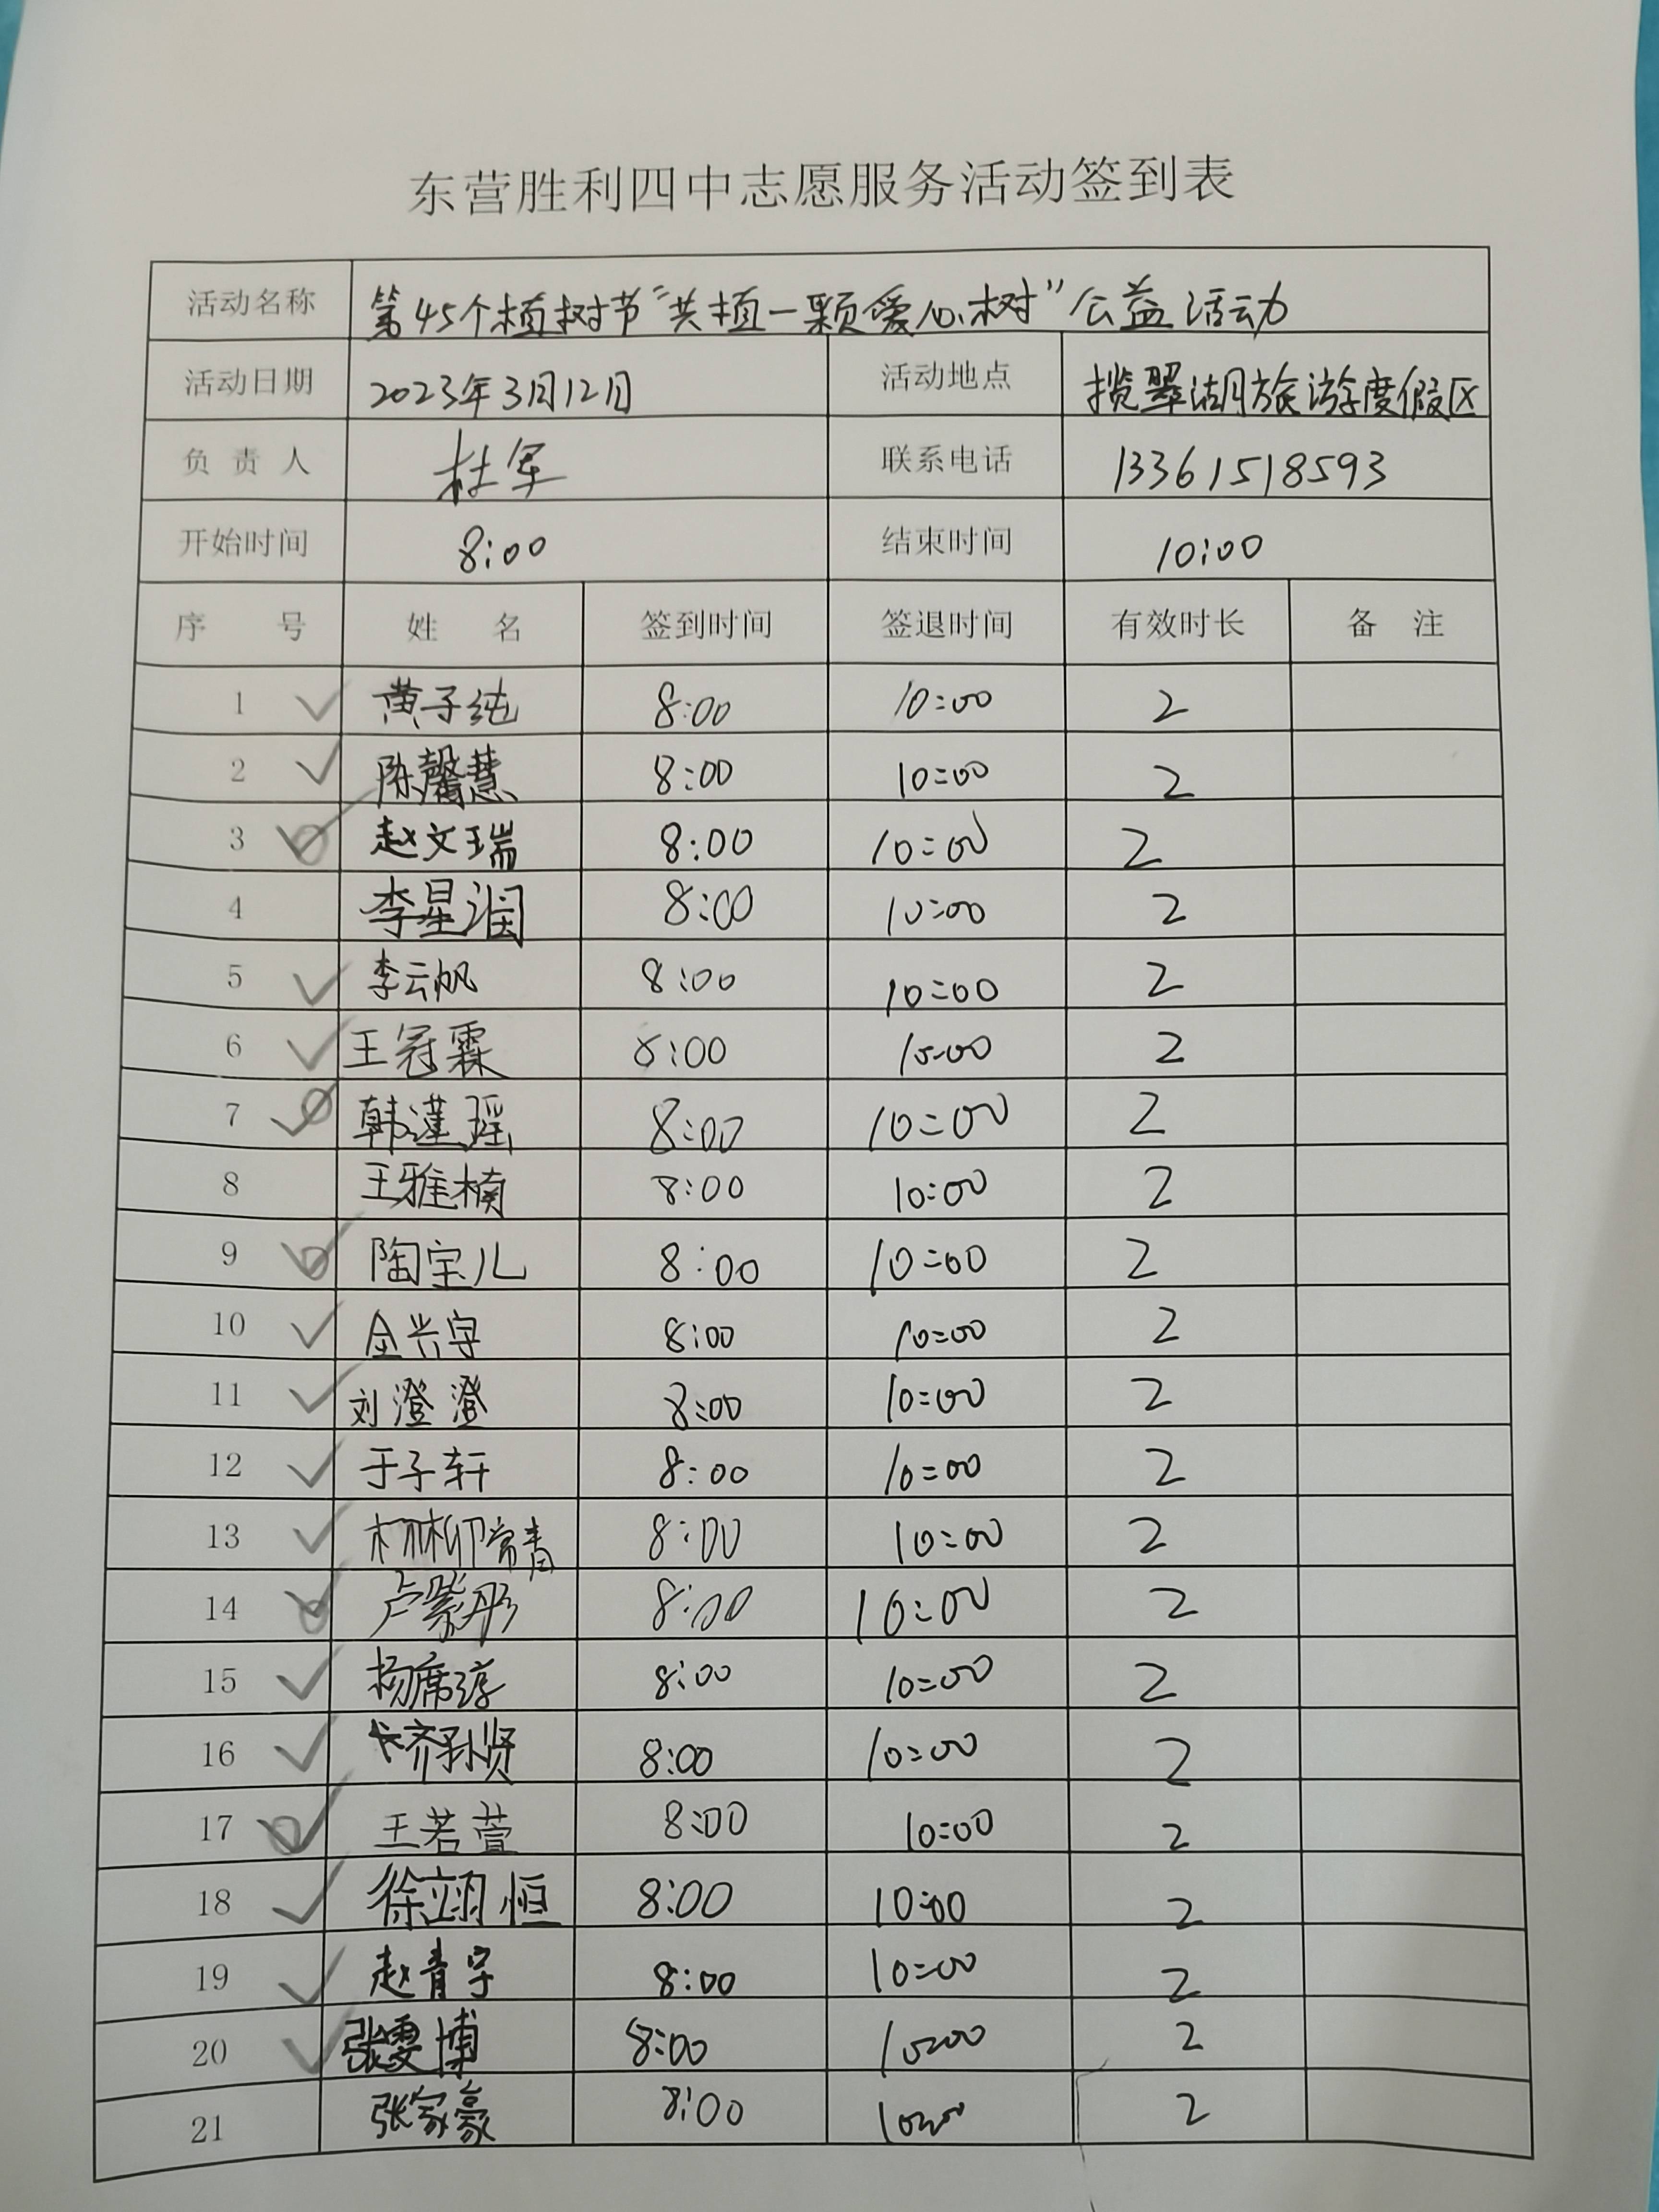 东营胜利四中志愿服务活动签到表
活动名称 第45个植树节“共植一颗爱心树”公益活动
活动日期 2023年3月12日 活动地点 揽翠湖旅游度假区
负责人 杜军 联系电话 13361518593
开始时间 8:00 结束时间 10:00
序号 姓名 签到时间 签退时间 有效时长 备注
1 黄子纯 8:00 10:00 2
2 陈馨慧 8:00 10:00 2
3 赵文瑞 8:00 10:00 2
4 李星润 8:00 10:00 2
5 李云帆 8:00 10:00 2
6 王冠霖 8:00 10:00 2
7 韩瑾瑶 8:00 10:00 2
8 王雅楠 8:00 10:00 2
9 陶宝儿 8:00 10:00 2
10 全兴宇 8:00 10:00 2
11 刘澄澄 8:00 10:00 2
12 于子轩 8:00 10:00 2
13 林柳常青 8:00 10:00 2
14 卢紫彤 8:00 10:00 2
15 杨席淳 8:00 10:00 2
16 8:00 10:00 2
17 王若萱 8:00 10:00 2
18 徐翊恒 8:00 10:00 2
19 赵青宇 8:00 10:00 2
20 张雯博 8:00 10:00 2
21 张家豪 8:00 10:00 2